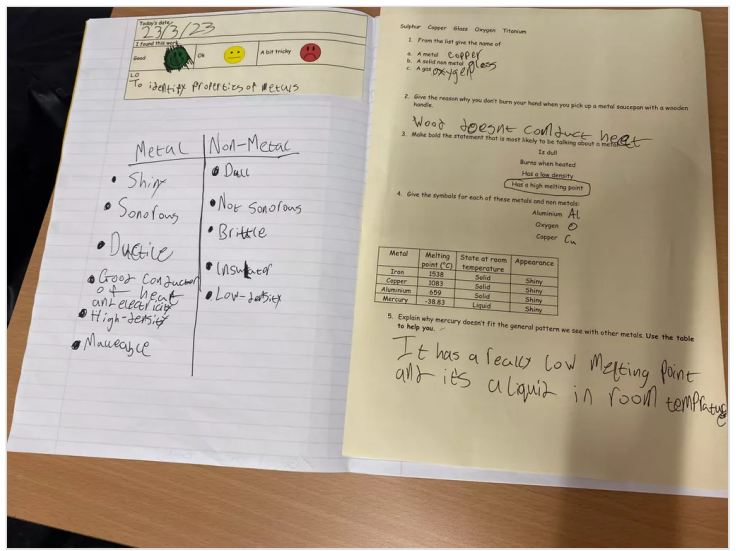 Today's date:
23/3/23
I found this work
Good
Ok
A bit tricky
LO
To identify properties of metals
Metal
Non-Metal
• Shiny
• Dull
• Sonorous
• Not sonorous
• Ductile
• Brittle
• Good conductor
of heat
and electricity
• Insulator
• High-density
• Low-density
• Maueable
Sulphur Copper Glass Oxygen Titanium
1. From the list give the name of
a. A metal copper
b. A solid non metal glass
c. A gas oxygen
2. Give the reason why you don't burn your hand when you pick up a metal saucepan with a wooden
handle.
Wood doesnt conduct heat
3. Make bold the statement that is most likely to be talking about a metal:
Is dull
Burns when heated
Has a low density
Has a high melting point
4. Give the symbols for each of these metals and non metals:
Aluminium Al
Oxygen O
Copper Cu
Metal Melting point (°C) State at room temperature Appearance
Iron 1538 Solid Shiny
Copper 1083 Solid Shiny
Aluminium 659 Solid Shiny
Mercury -38.83 Liquid Shiny
5. Explain why mercury doesn't fit the general pattern we see with other metals. Use the table
to help you.
It has a really low melting point
and it's a liquid in room temprature